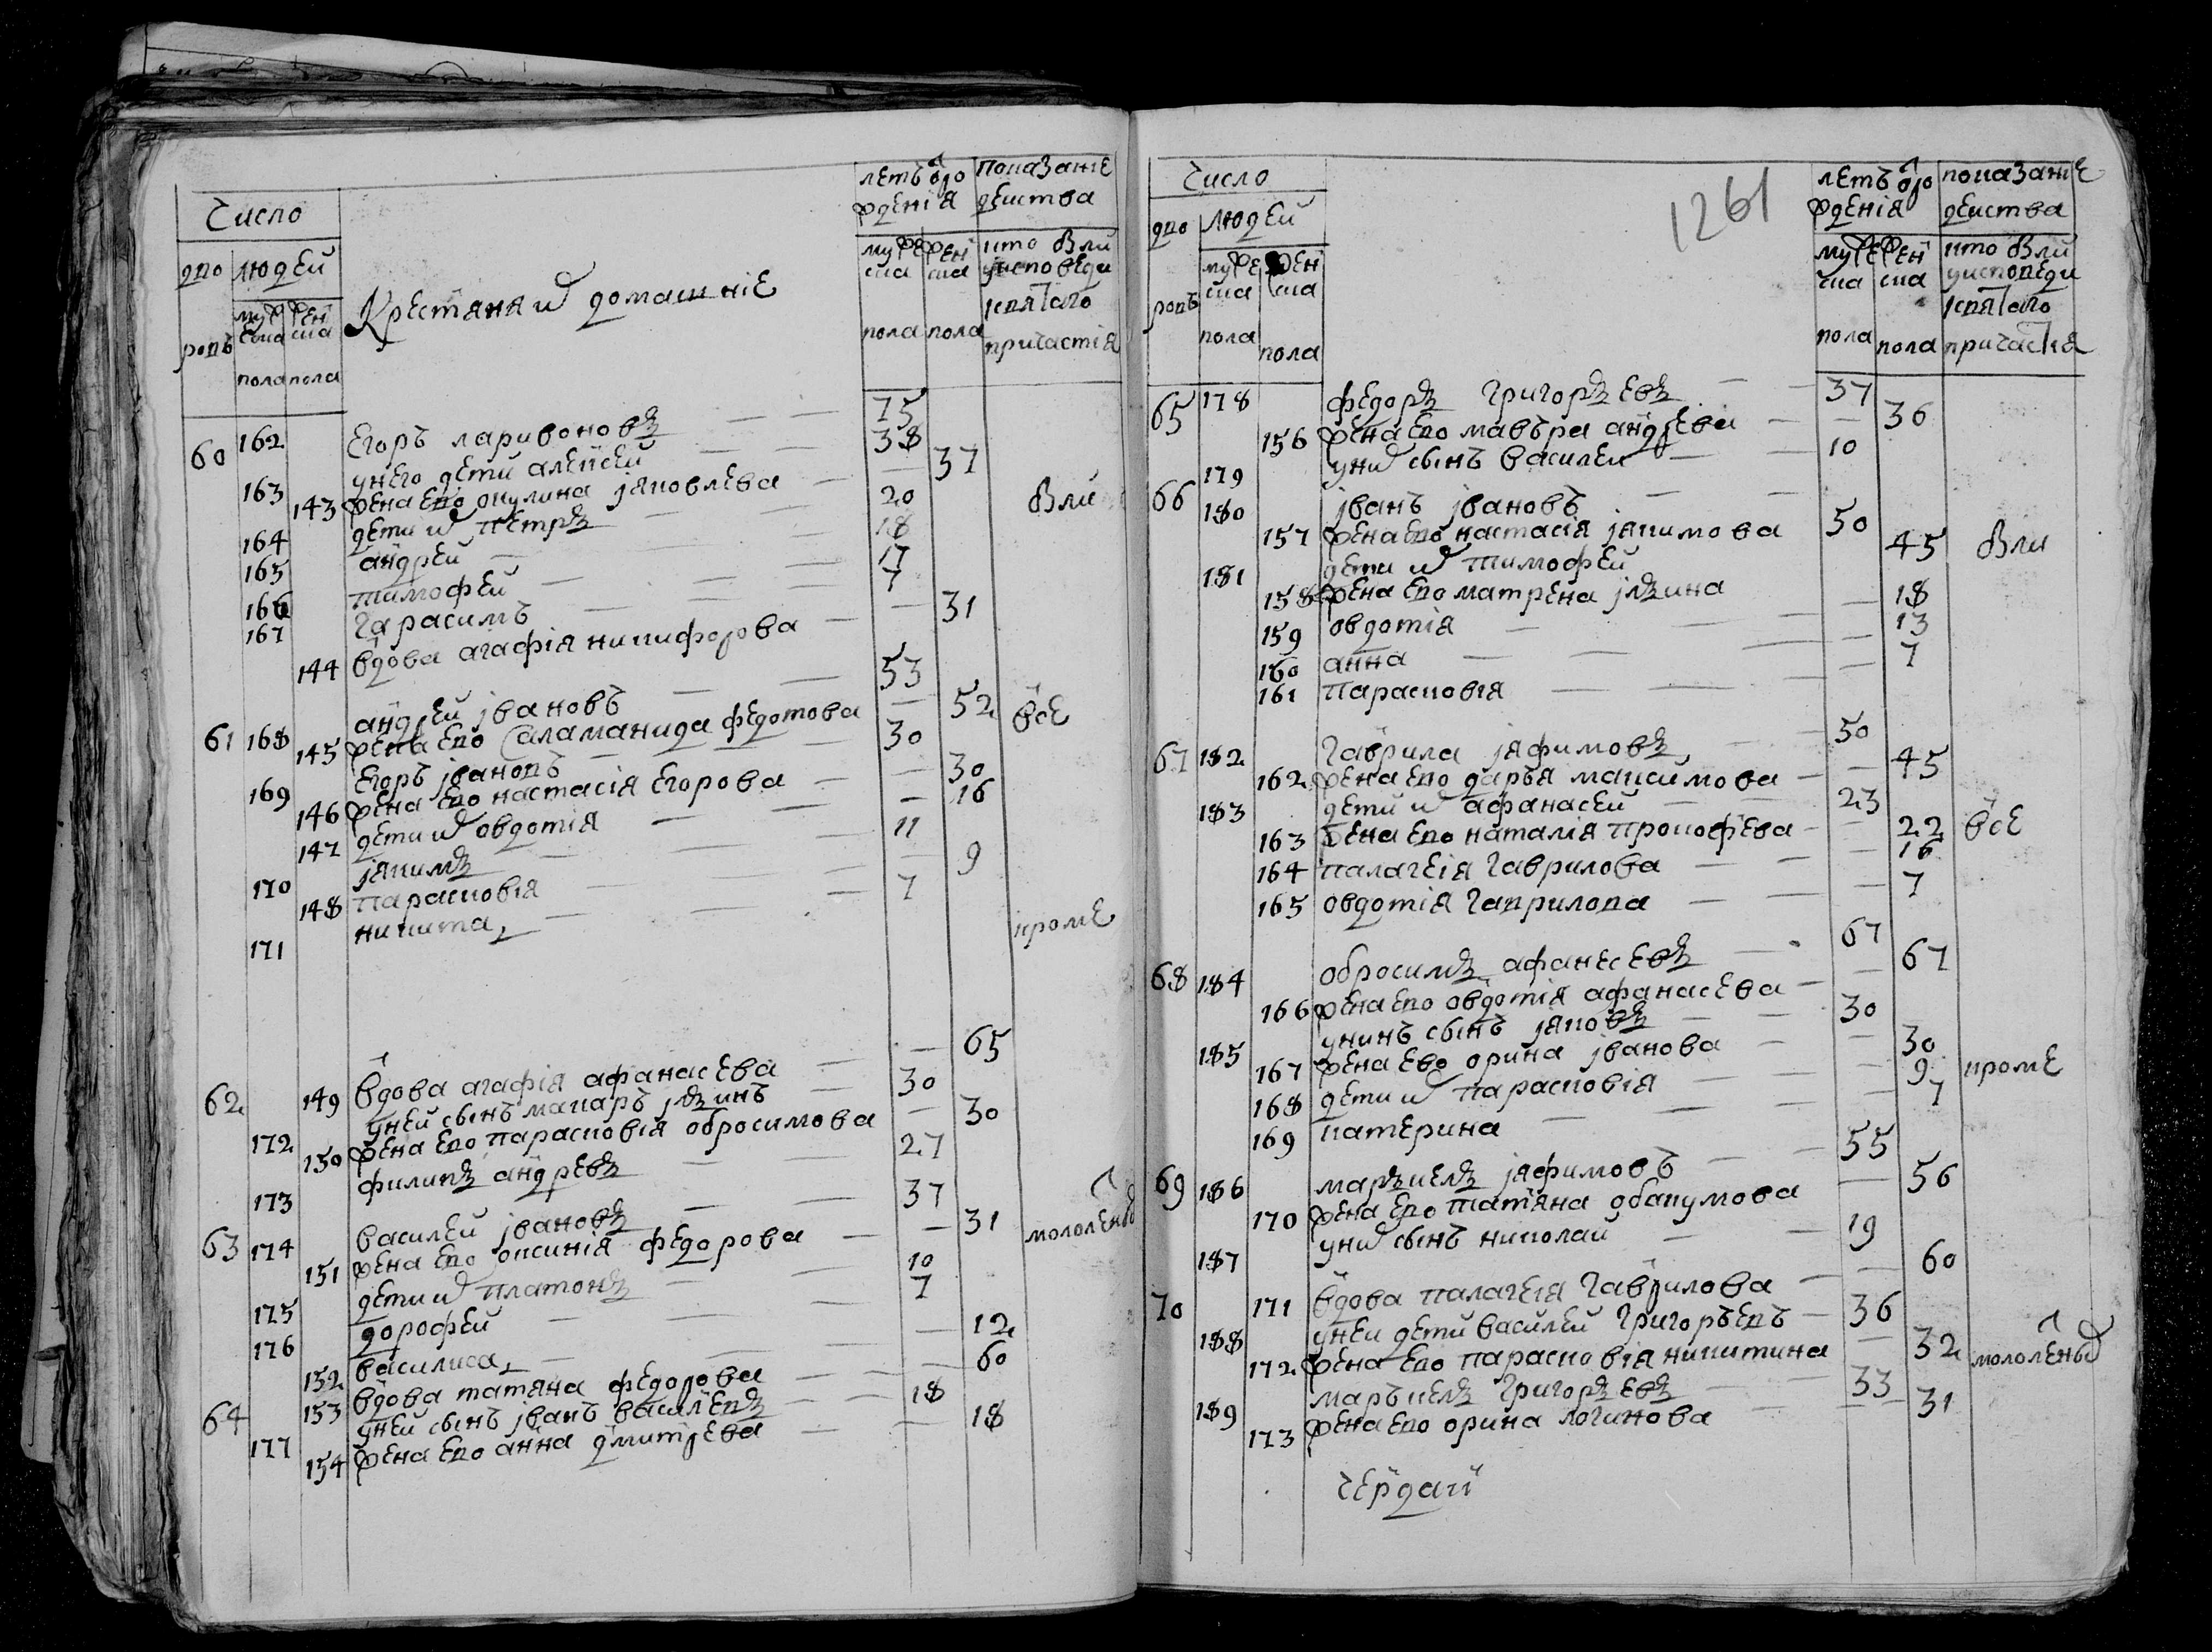 Число
дво
ровъ
людей
мужеска пола
женска пола
Крестьяня и домашніе
летъ от рожденія
мужеска пола
женска пола
показание действа
кто былъ у исповеди и святаго причастія
60 162 Егоръ ларивоновъ — — 75
163 у него дети алексей — — 38
143 жена ево окулина яковлева — — 37
были
164 дети их петръ — — 20
165 андрей — — 18
166 тимофей — — 17
167 гарасимъ — — 7
144 вдова агафія никифорова — — 31
61 168 андрей ивановъ — — 53
145 жена ево саламанида федотова — 52 все
169 Егоръ ивановъ — — 30
146 жена ево настасія Егорова — — 30
147 дети их овдотія — — 16
170 якимъ — — 11
148 парасковія — — 9
171 никита — — 7
кроме
62 149 вдова агафія афанасева — — 65
172 у ней сынъ макаръ ильинъ — 30
150 жена ево парасковія обросимова — 30
173 филипъ андревъ — — 27
63 174 василей ивановъ — — 37
151 жена ево оксинія федорова — — 31 мололеных
175 дети их платонъ — — 10
176 дорофей — — 7
152 василиса — — 12
64 153 вдова татяна федорова — — 60
177 у ней сынъ иванъ василевъ — 18
154 жена ево анна дмитрева — — 18
Число
дво
ровъ
людей
мужеска пола
женска пола
1261
летъ от рожденія
мужеска пола
женска пола
показание действа
кто был и у исповеди и святаго причастія
65 178 федоръ григорьевъ — — 37
156 жена ево мавъра андрева — — 36
179 у них сынъ василеи — — 10
66 180 иванъ ивановъ — — 50
157 жена ево настасія якимова 45 были
181 дети их тимофей
158 жена ево матрена ильина — 18
159 овдотія — — 13
160 анна — — 7
161 парасковія — —
67 182 гаврила яфимовъ — — 50
162 жена ево даръя максимова — — 45
183 дети их афанасей — — 23
163 жена ево наталія прокофева — — 22 все
164 палагея гаврилова — — 16
165 овдотія гаврилова — — 7
68 184 обросимъ афанесевъ — 67
166 жена ево овдотія афанасева — — 67
185 у нихъ сынъ яковъ — — 30
167 жена ево орина иванова — — 30
168 дети их парасковія — — 9 кроме
169 катерина — — 7
69 186 маръкелъ яфимовъ — — 55
170 жена ево татяна обакумова — 56
187 у них сынъ николай — — 19
70 171 вдова палагея гаврилова — — 60
188 у ней дети василей григоръевъ — 36
172 жена ево парасковія никитина — 32 мололеных
189 маръкелъ григорьевъ — — 33
173 жена ево орина логинова — — 31
чердак